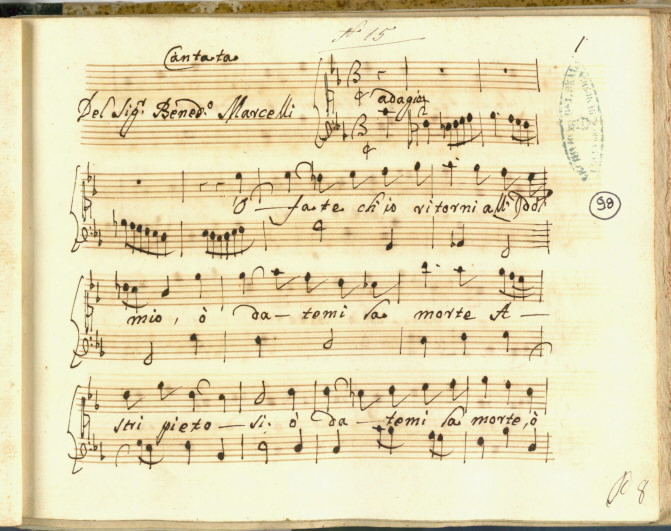 N. 15
1
Cantata
Del Sig.r Bened.o Marcelli
adagio
98
ò — fate ch'io ritorni all' Idol
mio, ò da — temi la morte A —
stri pieto — si. ò da — temi la morte, ò
8